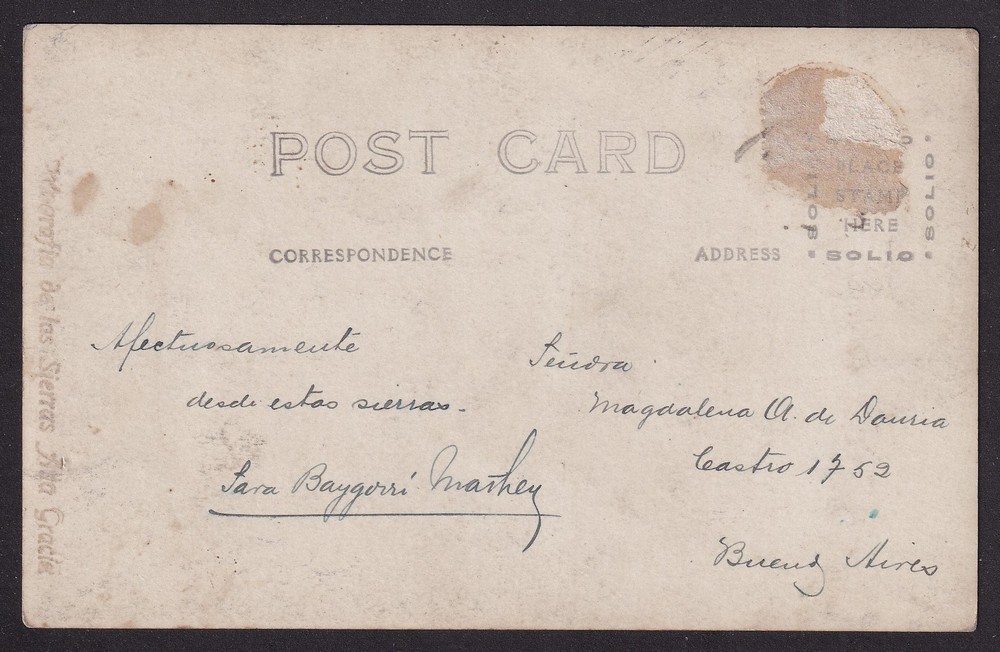 POST CARD
PLACE
STAMP
HERE
SOLIO
SOLIO
SOLIO
CORRESPONDENCE
ADDRESS
Afectuosamente
desde estas sierras.
Sara Baygorrí
Señora
Magdalena A. de Dauria
Castro 1752
Buenos Aires
de las Sierras Alta Gracia